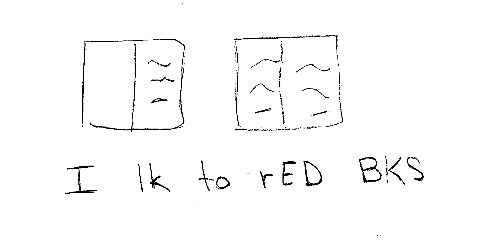 I lk to rED BKS